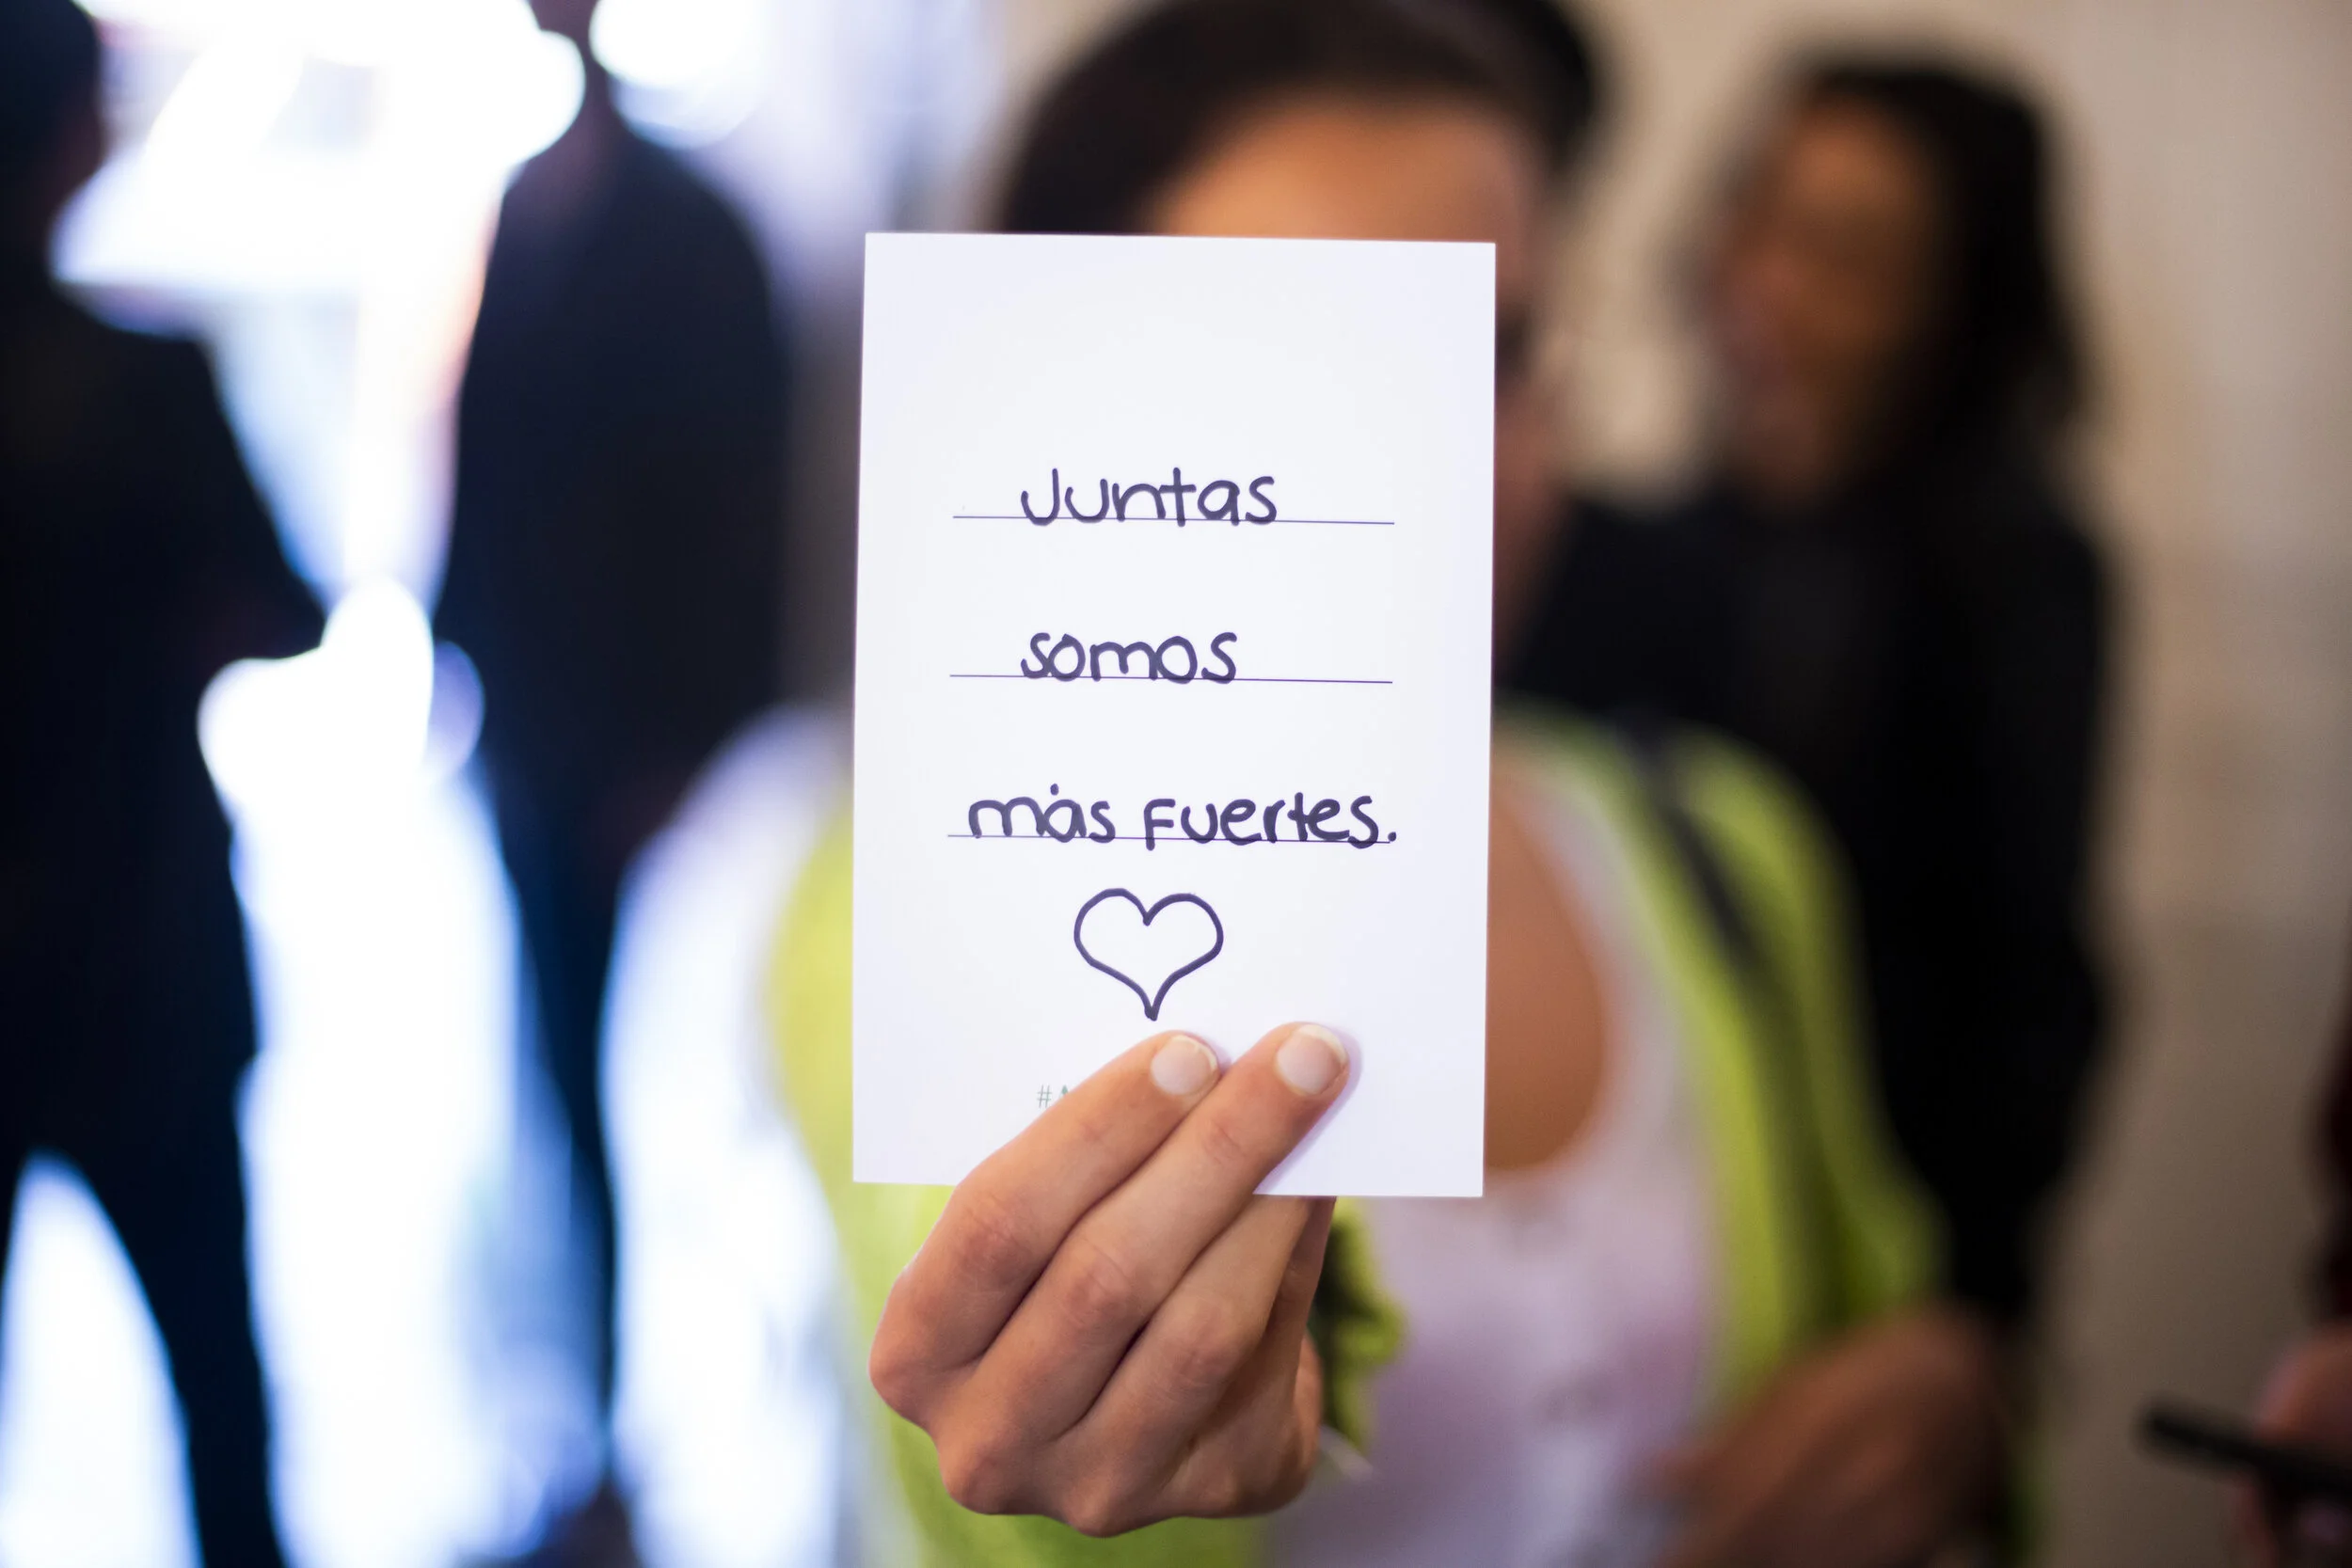 Juntas
somos
más fuertes.
#